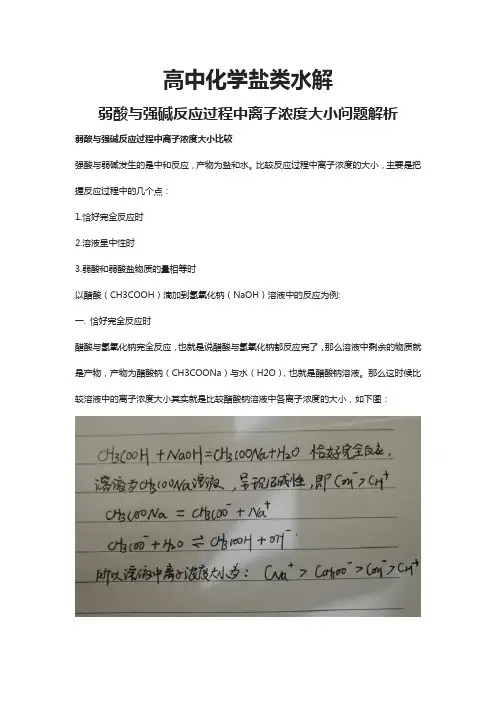 高中化学盐类水解
弱酸与强碱反应过程中离子浓度大小问题解析
弱酸与强碱反应过程中离子浓度大小比较
强酸与弱碱发生的是中和反应，产物为盐和水。比较反应过程中离子浓度的大小，主要是把
握反应过程中的几个点：
1.恰好完全反应时
2.溶液呈中性时
3.弱酸和弱酸盐物质的量相等时
以醋酸（CH3COOH）滴加到氢氧化钠（NaOH）溶液中的反应为例:
一. 恰好完全反应时
醋酸与氢氧化钠完全反应，也就是说醋酸与氢氧化钠都反应完了，那么溶液中剩余的物质就
是产物，产物为醋酸钠（CH3COONa）与水（H2O），也就是醋酸钠溶液。那么这时候比
较溶液中的离子浓度大小其实就是比较醋酸钠溶液中各离子浓度的大小，如下图：
CH3COOH + NaOH = CH3COONa + H2O 恰好完全反应，
溶液为CH3COONa溶液，呈现弱碱性，即 COH⁻ > CH⁺
CH3COONa = CH3COO⁻ + Na⁺
CH3COO⁻ + H2O ⇌ CH3COOH + OH⁻.
所以溶液中离子浓度大小为: CNa⁺ > CCH3COO⁻ > COH⁻ > CH⁺